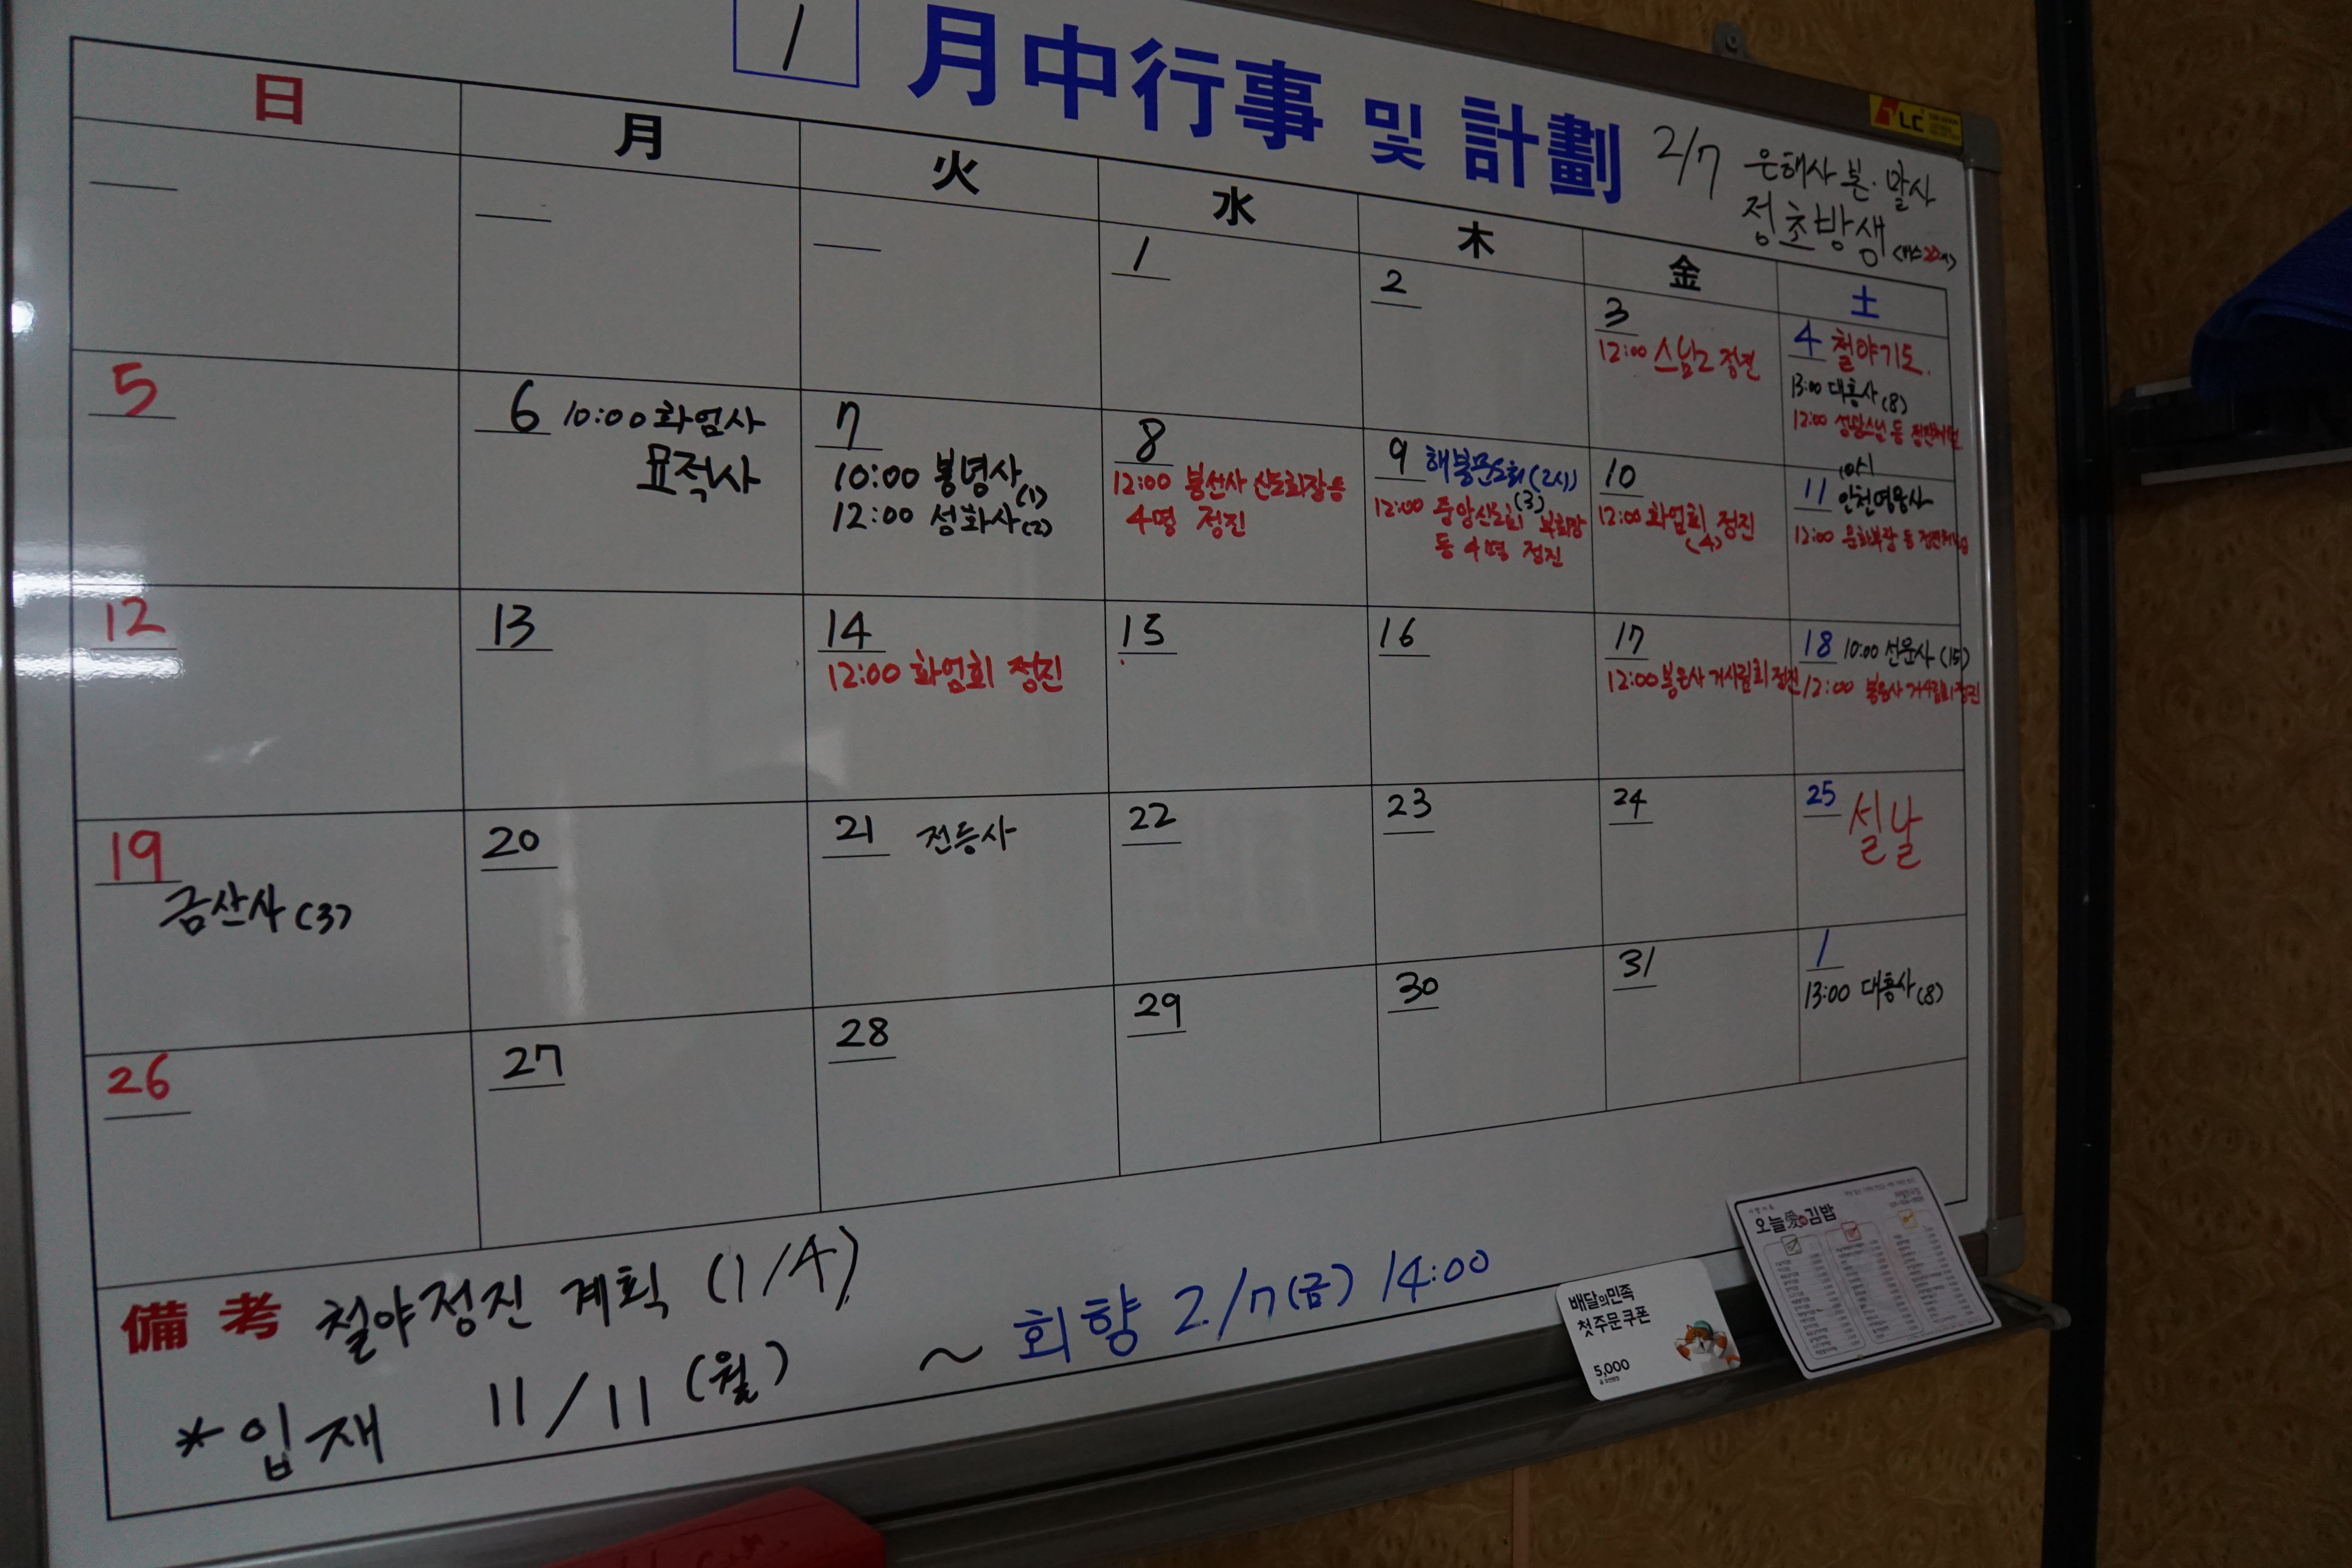 1 月中行事 및 計劃
2/7 은해사 본·말사
정초방생
日 月 火 水 木 金 土
1
2
3
12:00 스님2 정진
4 철야기도.
13:00 대흥사(8)
12:00
5
6 10:00 화엄사
표적사
7
10:00 봉녕사(1)
12:00 성화사(2)
8
12:00 봉선사 신도회장등
4명 정진
9 해불문도회(2시)
(3)
12:00 중앙신도회 부회장
등 4명 정진
10
12:00 화엄회 정진
(4)
10시
11 인천연왕사
12:00 문화부장 등
12
13
14
12:00 화엄회 정진
15
16
17
12:00 봉은사 거사림회 정진
18 10:00 선운사(15)
12:00 봉은사 거사림회 정진
19
금산사(3)
20
21 전등사
22
23
24
25 설날
26
27
28
29
30
31
1
13:00 대흥사(8)
備考 철야정진 계획 (1/4)
*입재 11/11 (월) ~ 회향 2/7(금) 14:00
배달의민족
첫 주문 쿠폰
5,000
오늘愛김밥
LC